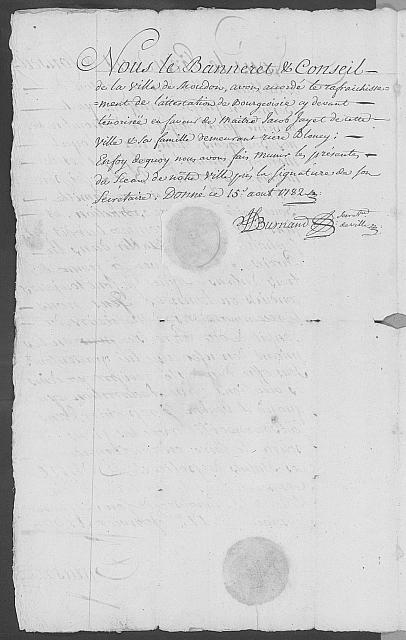 Nous le Banneret & Conseil
de la Ville de Moudon, avons accordé le rafraichisse=
=ment de l'attestation de Bourgeoisie cy devant
ténorisée en faveur de Maitre Jacob Jayet de cette
Ville & sa famille demeurant rière Blonay;
En foy de quoy nous avons fait munir les présentes
du Sceau de notre Ville par la signature de son
Secretaire. Donné ce 15e. aout 1782
Burnand secretre.
de ville